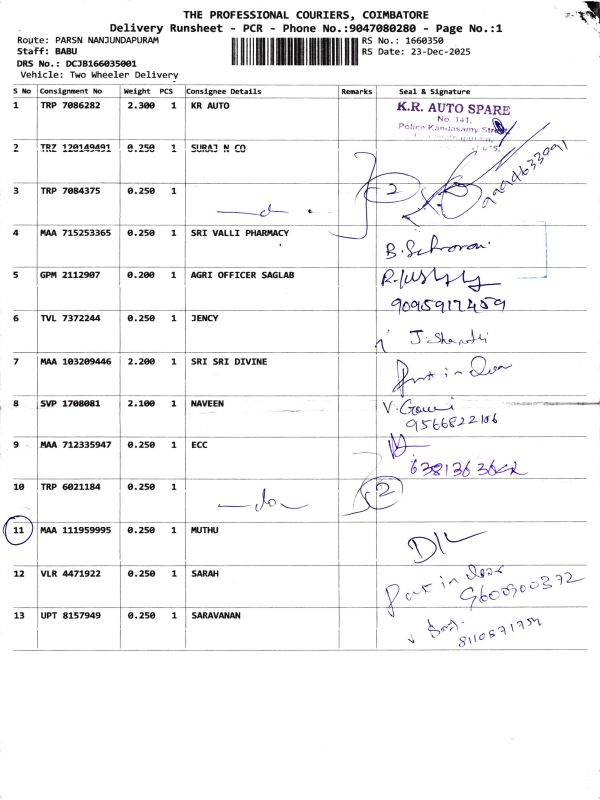 THE PROFESSIONAL COURIERS, COIMBATORE
Delivery Runsheet - PCR - Phone No.:9047080280 - Page No.:1
Route: PARSN NANJUNDAPURAM
RS No.: 1660350
Staff: BABU
RS Date: 23-Dec-2025
DRS No.: DCJB166035001
Vehicle: Two Wheeler Delivery
S No Consignment No Weight PCS Consignee Details Remarks Seal & Signature
1 TRP 7086282 2.300 1 KR AUTO
K.R. AUTO SPARE
No. 141,
Police Kandasamy Street,
2 TRZ 120149491 0.250 1 SURAJ N CO
3 TRP 7084375 0.250 1
2
4 MAA 715253365 0.250 1 SRI VALLI PHARMACY
5 GPM 2112907 0.200 1 AGRI OFFICER SAGLAB
9095917459
6 TVL 7372244 0.250 1 JENCY
7 MAA 103209446 2.200 1 SRI SRI DIVINE
in door
8 SVP 1708081 2.100 1 NAVEEN
V. Gowri
9566822106
9 MAA 712335947 0.250 1 ECC
10 TRP 6021184 0.250 1
do
2
11 MAA 111959995 0.250 1 MUTHU
D/L
12 VLR 4471922 0.250 1 SARAH
in door
9600900372
13 UPT 8157949 0.250 1 SARAVANAN